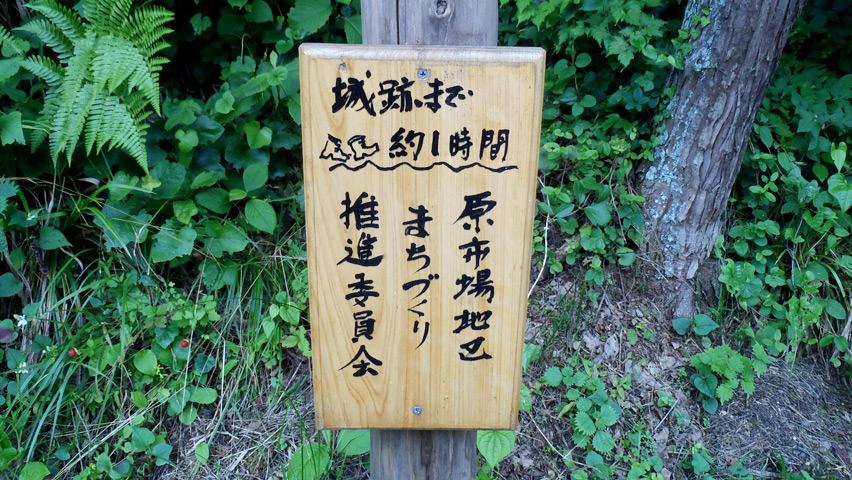 城跡まで
約1時間
原市場地区
まちづくり
推進委員会